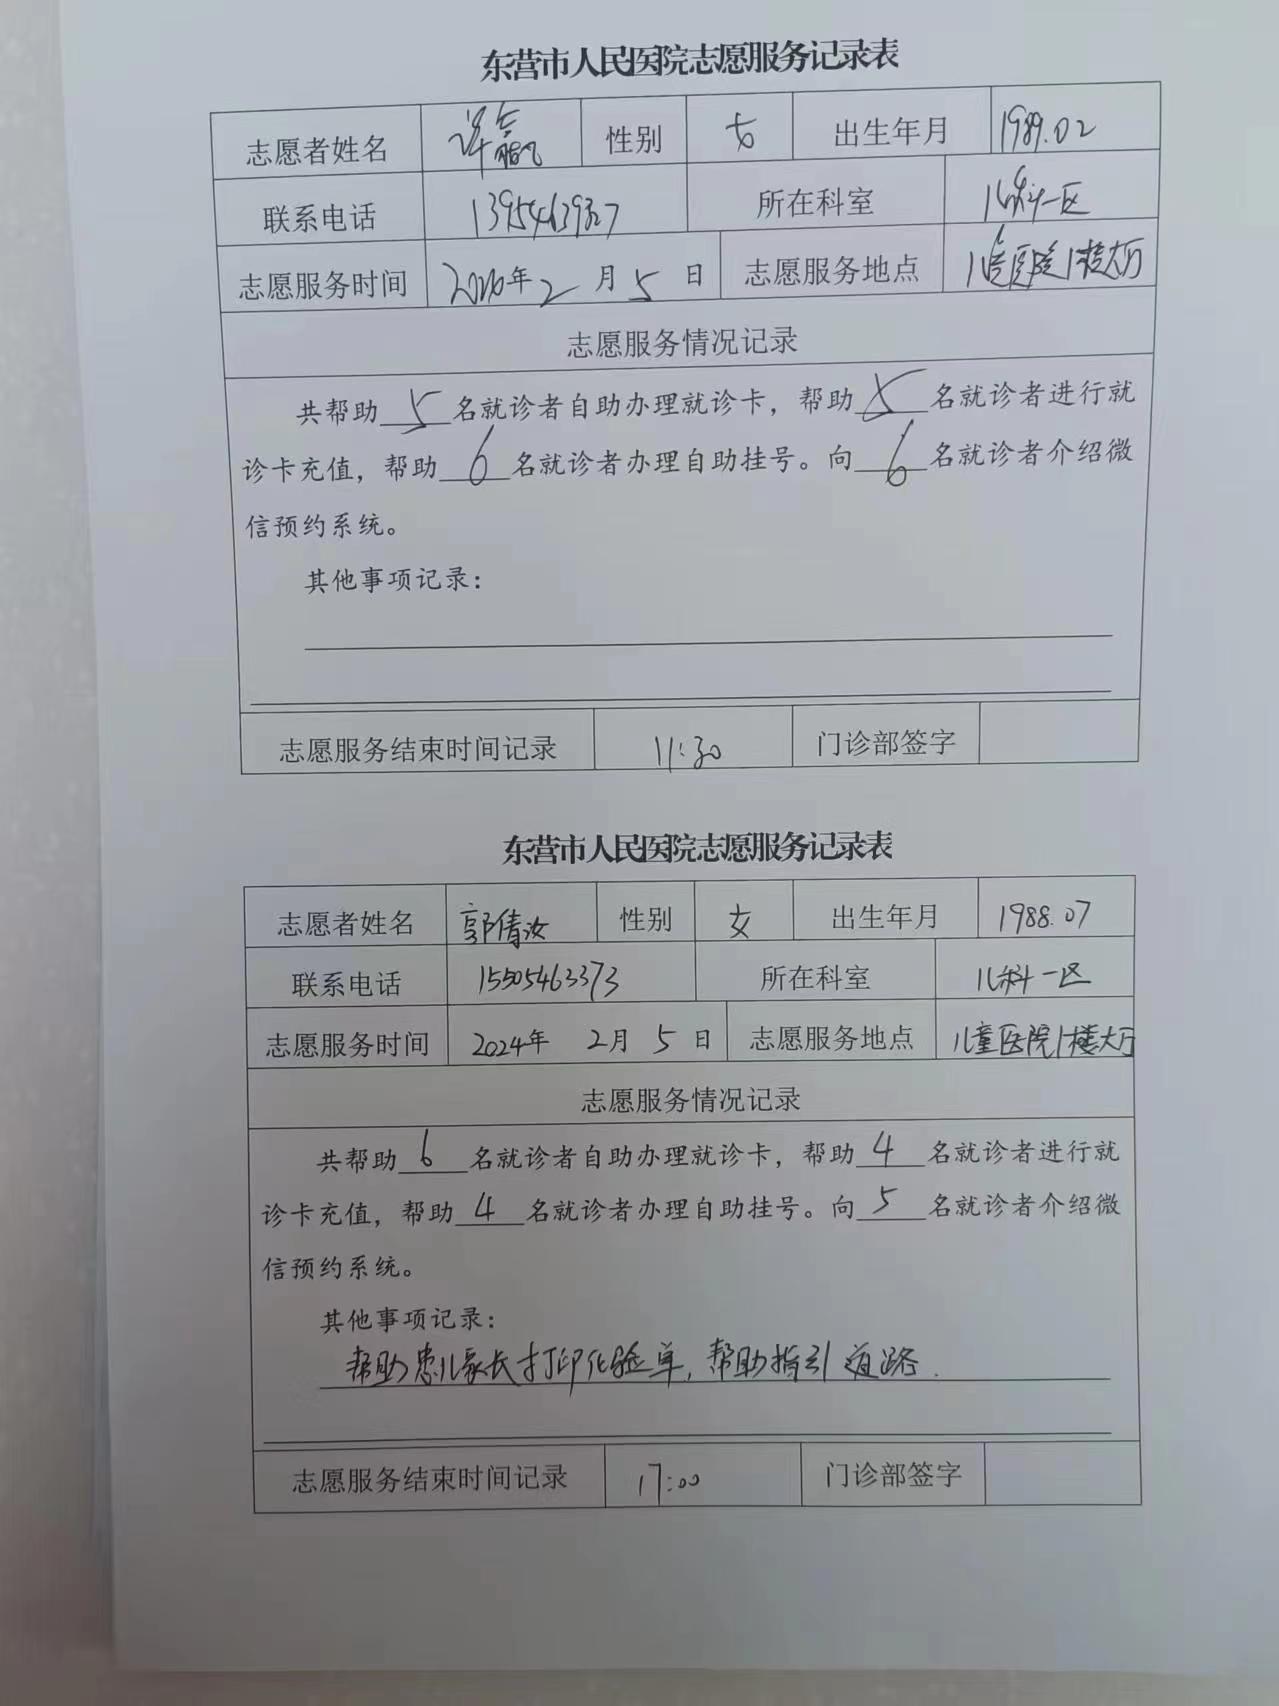 东营市人民医院志愿服务记录表
志愿者姓名 性别 女 出生年月 1989.02
联系电话 所在科室 儿科一区
志愿服务时间 年2月5日 志愿服务地点 儿童医院1楼大厅
志愿服务情况记录
共帮助5名就诊者自助办理就诊卡，帮助5名就诊者进行就
诊卡充值，帮助6名就诊者办理自助挂号。向6名就诊者介绍微
信预约系统。
其他事项记录：
志愿服务结束时间记录 11:30 门诊部签字
东营市人民医院志愿服务记录表
志愿者姓名 郭倩汝 性别 女 出生年月 1988.07
联系电话 15505463373 所在科室 儿科一区
志愿服务时间 2024年 2月 5日 志愿服务地点 儿童医院1楼大厅
志愿服务情况记录
共帮助6名就诊者自助办理就诊卡，帮助4名就诊者进行就
诊卡充值，帮助4名就诊者办理自助挂号。向5名就诊者介绍微
信预约系统。
其他事项记录：
帮助患儿家长打印化验单，帮助指引道路.
志愿服务结束时间记录 17:00 门诊部签字